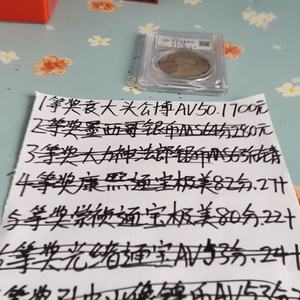 1等奖袁大头公博AV50.1700元
2等奖墨西哥银币MS64分280元
3等奖大力神法郎银币MS63
4等奖康熙通宝极美82分.2十
5等奖崇祯通宝极美80分.22十
6等奖光绪通宝AV53分.24十